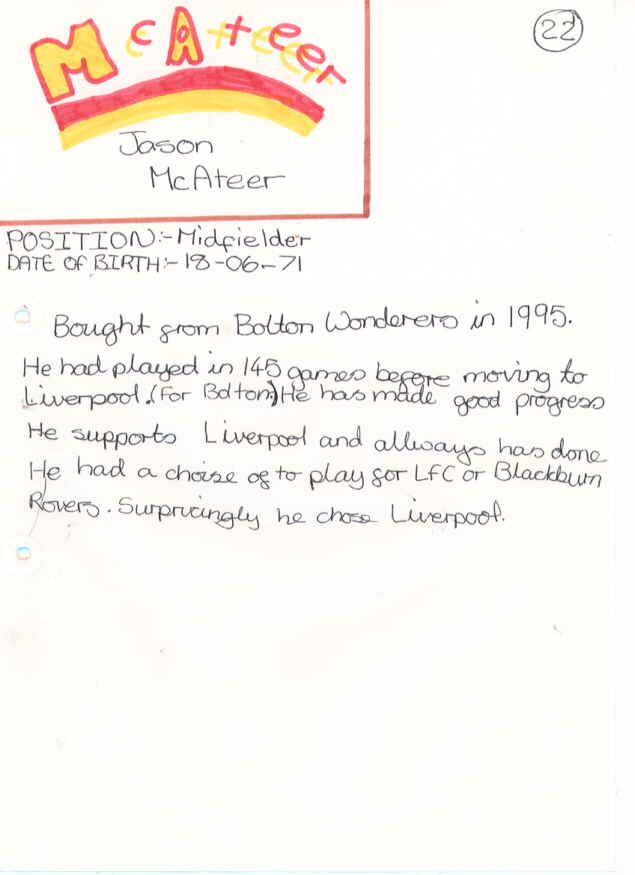 McAteer
22
Jason
McAteer
POSITION:- Midfielder
DATE OF BIRTH:- 18-06-71
Bought from Bolton Wonderers in 1995.
He had played in 145 games before moving to
Liverpool.(For Bolton) He has made good progress
He supports Liverpool and allways has done
He had a choise of to play for LFC or Blackburn
Rovers. Surpricingly he chose Liverpool.